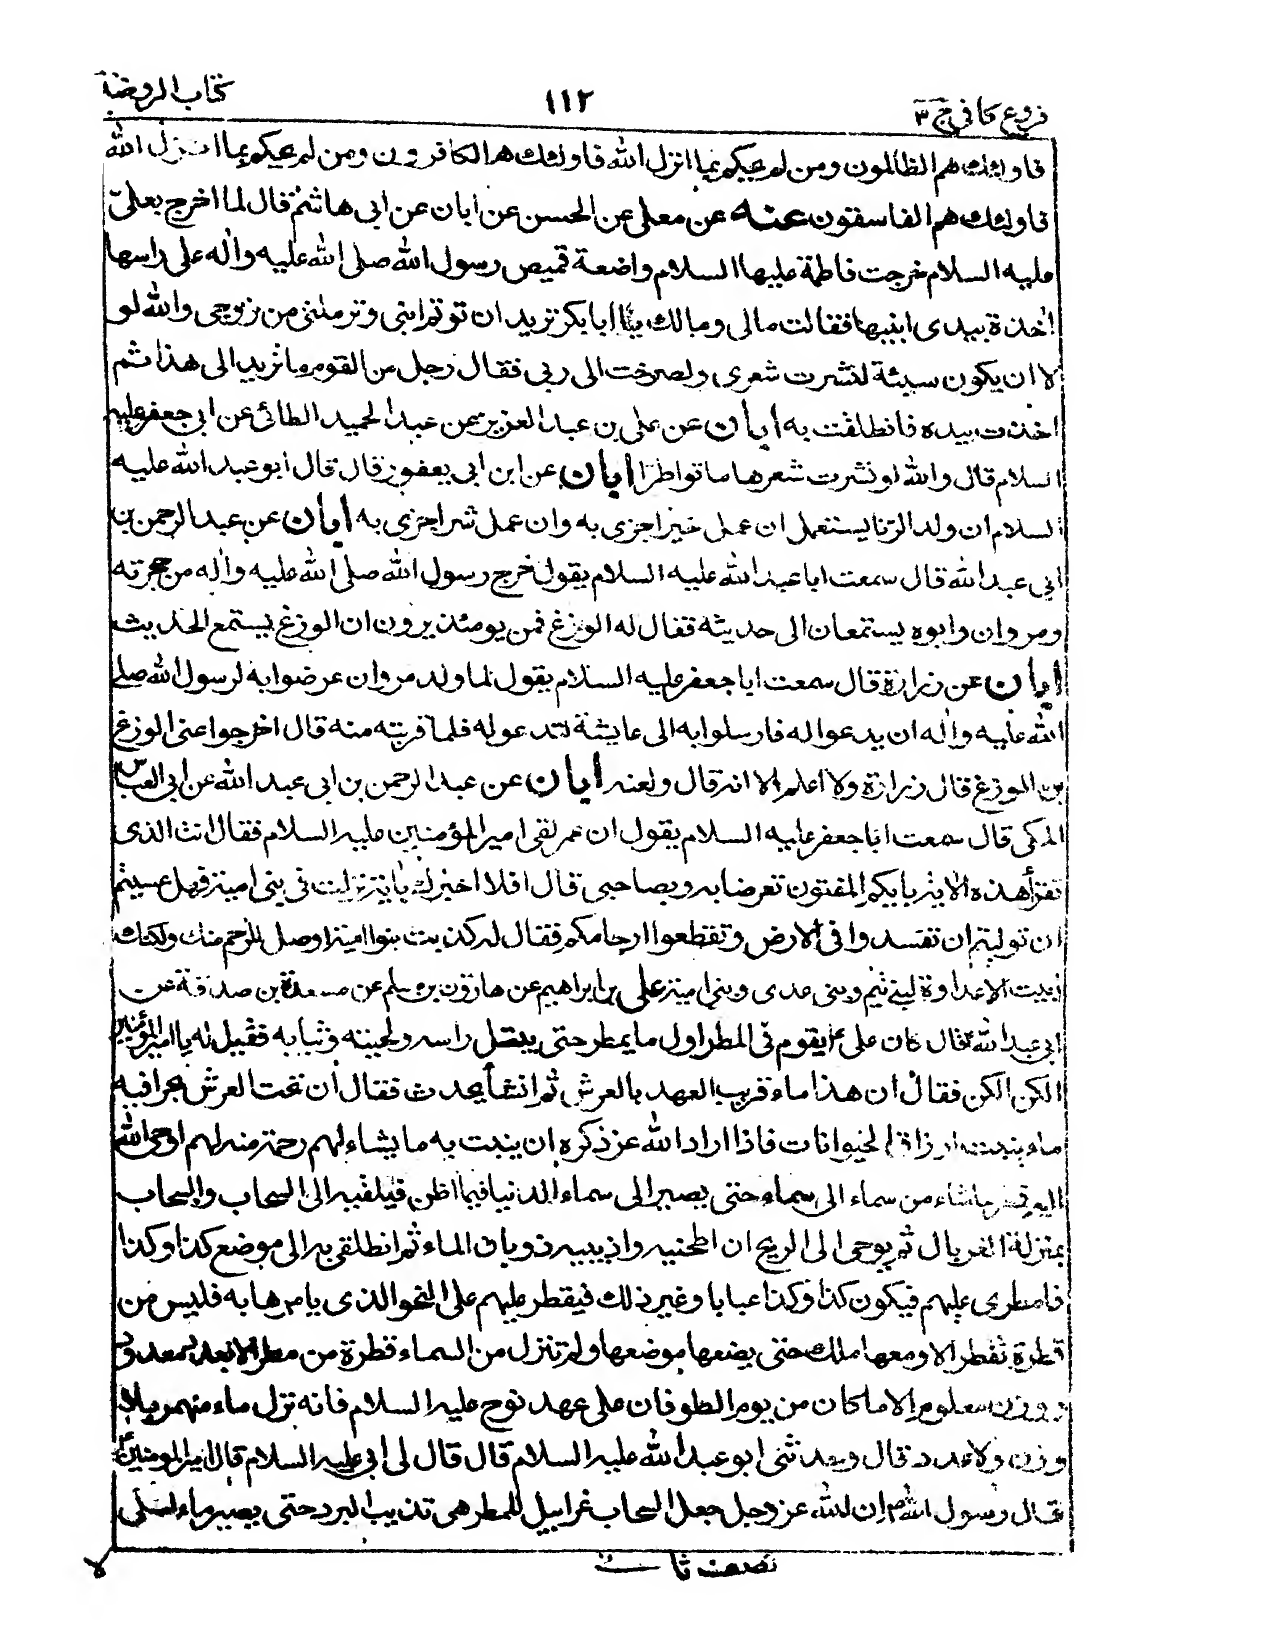 فروع كافی ج ۳
۱۱۲
كتاب الروضة
فاولئك هم الظالمون ومن لم يحكم بما انزل الله فاولئك هم الكافرون ومن لم يحكم بما انزل الله
فاولئك هم الفاسقون عنه عن معلى عن الحسن عن ابان عن ابى هاشم قال لما اخرج بعلىّ
عليه السلام خرجت فاطمة عليها السلام واضعة قميص رسول الله صلى الله عليه واله على راسها
اخذة بيدى ابنيها فقالت مالى ومالك يا ابابكر تريد ان توتم ابنى وترملنى من زوجى والله لو
لا ان يكون سيئة لنشرت شعرى ولصرخت الى ربى فقال رجل من القوم ما تريد الى هذا ثم
اخذت بيده فانطلقت به ابان عن على بن عبد العزيز عن عبد الحميد الطائى عن ابى جعفر عليه
السلام قال والله لو نشرت شعرها ماتوا طرّا ابان عن ابن ابى يعفور قال قال ابو عبد الله عليه
السلام ان ولد الزنا يستعمل ان عمل خيرا جزى به وان عمل شرا جزى به ابان عن عبد الرحمن بن
ابى عبد الله قال سمعت ابا عبد الله عليه السلام يقول خرج رسول الله صلى الله عليه واله من حجرته
ومروان وابوه يستمعان الى حديثه فقال له الوزغ فمن يومئذ يرون ان الوزغ يستمع الحديث
ابان عن زرارة قال سمعت ابا جعفر عليه السلام يقول لما ولد مروان عرضوا به لرسول الله صلى
الله عليه واله ان يدعو اله فارسلوا به الى عايشة لتدعو له فلما قربته منه قال اخرجوا عنى الوزغ
بن الوزغ قال زرارة ولا اعلم الا انه قال ولعنه ابان عن عبد الرحمن بن ابى عبد الله عن ابى العباس
المكى قال سمعت ابا جعفر عليه السلام يقول ان عمر لقى امير المؤمنين عليه السلام فقال انت الذى
تقرأ هذه الاية بايكم المفتون تعرضا بى وبصاحبى قال افلا اخبرك باية نزلت فى بنى امية فهل عسيتم
ان توليتم ان تفسدوا فى الارض وتقطعوا ارحامكم فقال له كذبت بنوا امية اوصل للرحم منك ولكنك
ابيت الا عداوة لبنى تيم وبنى عدى وبنى امية على بن ابراهيم عن هارون بن مسلم عن مسعدة بن صدقة عن
ابى عبد الله ع قال كان على ع يقوم فى المطر اول ما يمطر حتى يبتل راسه ولحيته وثيابه فقيل له يا امير المؤمنين
الكن الكن فقال ان هذا ماء قريب العهد بالعرش ثم انشأ يحدث فقال ان تحت العرش بحرا فيه
ماء ينبت ارزاق الحيوانات فاذا اراد الله عز ذكره ان ينبت به ما يشاء لهم رحمة منه لهم اوحى الله
اليه فمطر ما شاء من سماء الى سماء حتى يصير الى سماء الدنيا فيما اظن فيلقيه الى السحاب والسحاب
بمنزلة الغربال ثم يوحى الى الريح ان اطحنيه واذيبيه ذوبان الماء ثم انطلقى به الى موضع كذا وكذا
فامطرى عليهم فيكون كذا وكذا عبابا وغير ذلك فيقطر عليهم على النحو الذى يامرها به فليس من
قطرة تقطر الا ومعها ملك حتى يضعها موضعها ولم تنزل من السماء قطرة من مطر الا بعدد معدود
ووزن معلوم الا ما كان من يوم الطوفان على عهد نوح عليه السلام فانه نزل ماء منهمر بلا
وزن ولا عدد قال وحدثنى ابو عبد الله عليه السلام قال قال لى ابى عليه السلام قال امير المومنين ع
قال رسول الله ص ان لله عز وجل جعل السحاب غرابيل للمطر هى تذيب البرد حتى يصير ماء لكى
لا
نصف ثالث